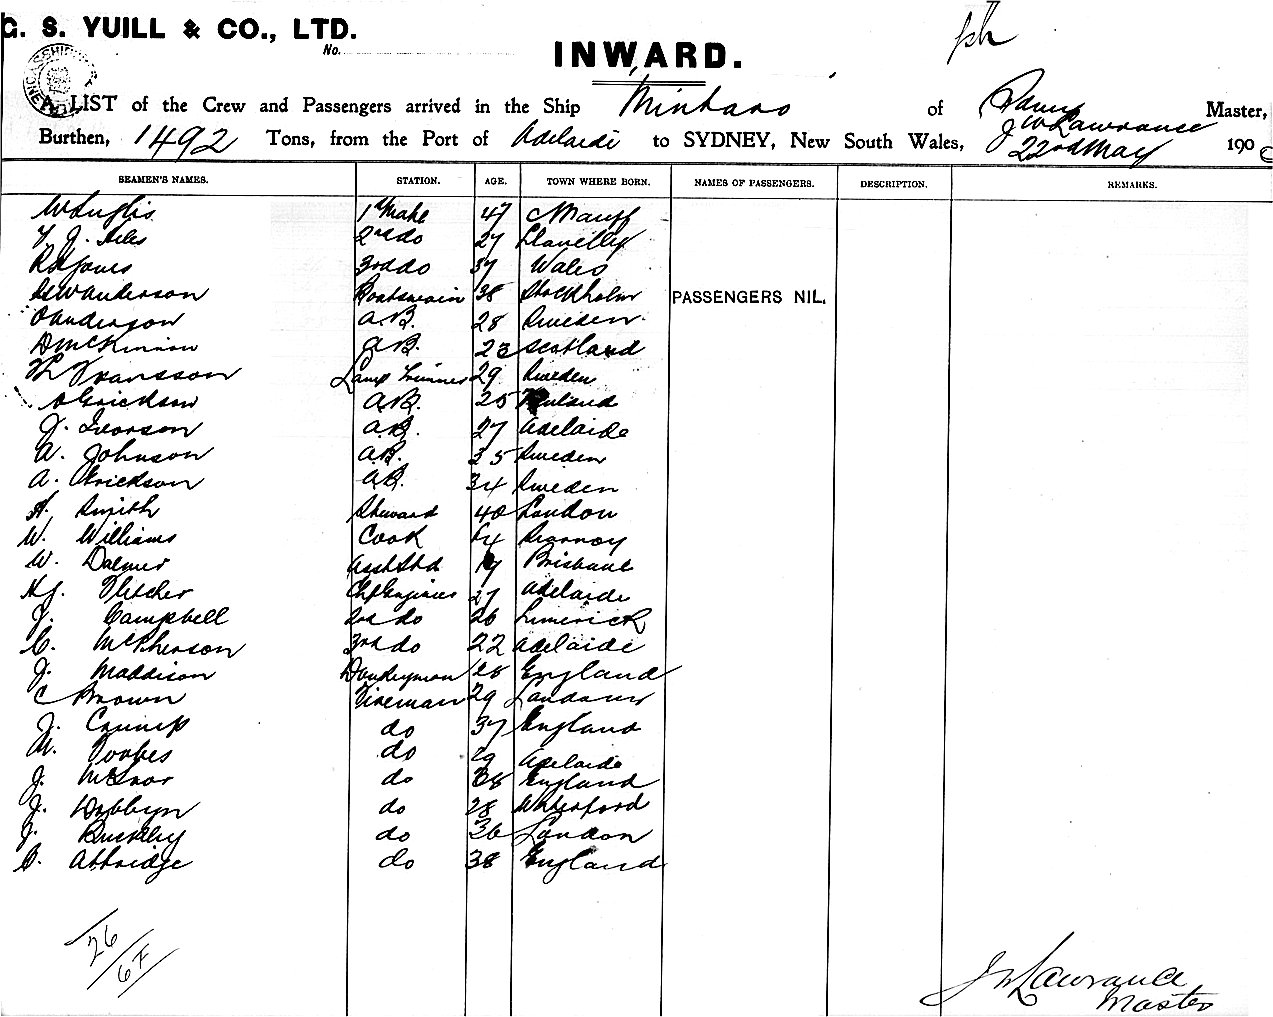 G. S. YUILL & CO., LTD.
No.
INWARD.
A LIST of the Crew and Passengers arrived in the Ship Mintaro of Master,
J W Lawrance
Burthen, 1492 Tons, from the Port of Adelaide to SYDNEY, New South Wales, 22nd May 190
SEAMEN'S NAMES. STATION. AGE. TOWN WHERE BORN. NAMES OF PASSENGERS. DESCRIPTION. REMARKS.
W Inglis 1st Mate 47 Banff
J. Iles 2nd do 27 Llanelly
R H Jones 3rd do 37 Wales
Anderson Boatswain 38 Stockholm PASSENGERS NIL.
O Anderson A.B. 28 Sweden
D McKinnon A.B. 23 Scotland
Svansson Lamp Trimmer 29 Sweden
A Erickson A.B. 25
J. Ivorson A.B. 27 Adelaide
A. Johnson A.B. 35 Sweden
A. Erickson A.B. 34 Sweden
A. Smith Steward 40 London
W. Williams Cook
W. Dalmer Asst Std Brisbane
H J. Fletcher Chf Engineer 27 Adelaide
J. Campbell 2nd do 26 Limerick
C. McPherson 3rd do 22 Adelaide
J. Maddison Donkeyman 28 England
C Brown Fireman 29
J. Crump do 37 England
M. Forbes do 29 Adelaide
J. do 38 England
J. Dobbyn do 28 Waterford
J. Buckley do 36 London
C. Attridge do 38 England
26
67
J W Lawrance
Master